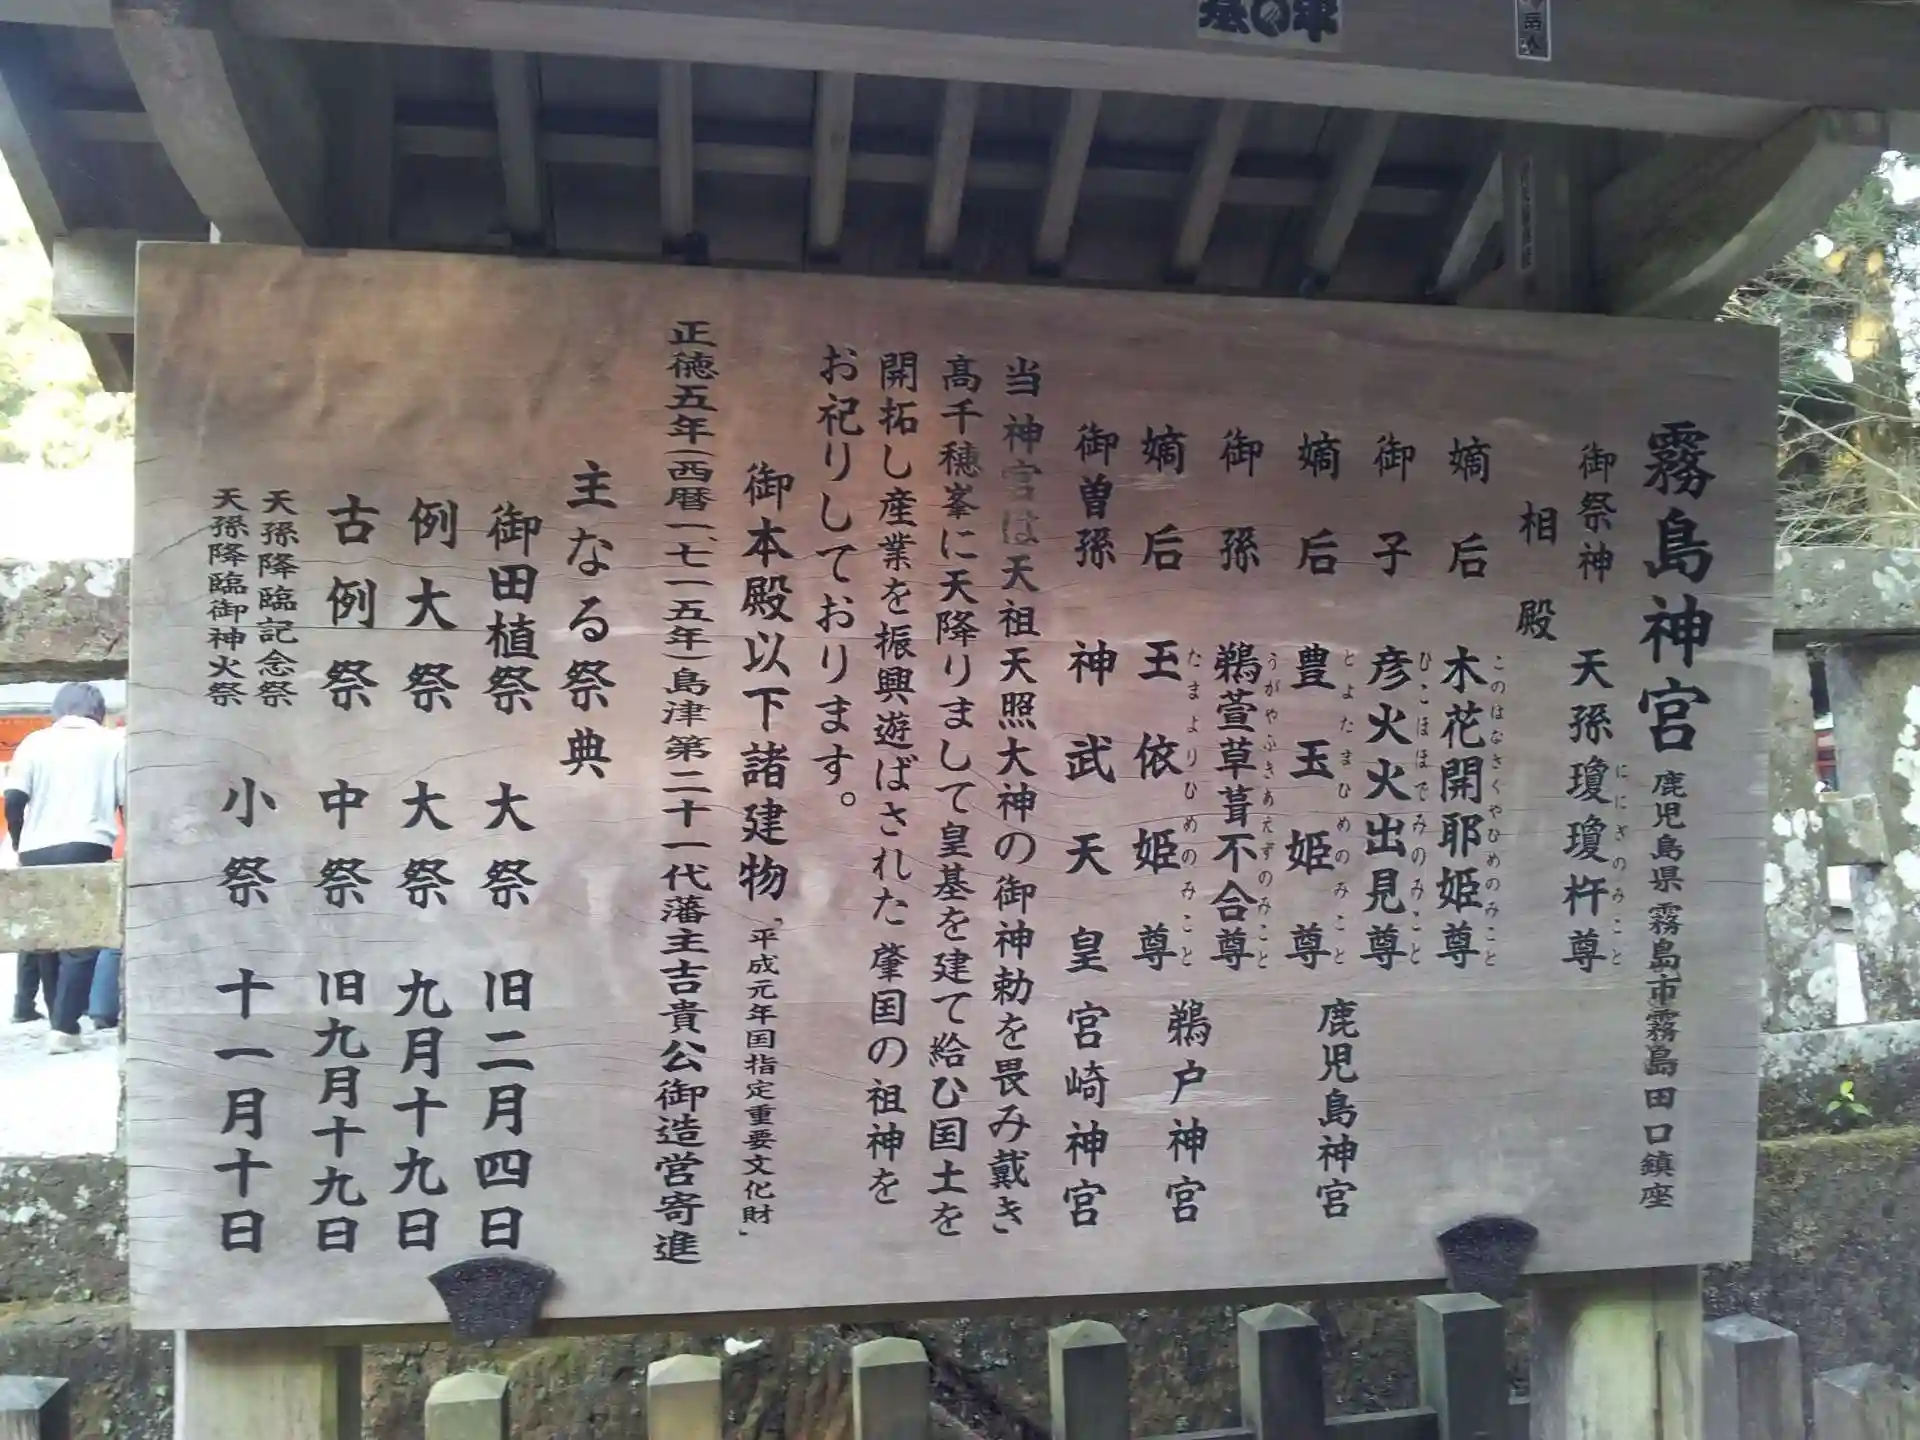 霧島神宮 鹿児島県霧島市霧島田口鎮座
御祭神 天孫瓊瓊杵尊
ににぎのみこと
相殿
嫡后 木花開耶姫尊
このはなさくやひめのみこと
御子 彦火火出見尊
ひこほほでみのみこと
鹿児島神宮
嫡后 豊玉姫尊
とよたまひめのみこと
御孫 鵜萱草葺不合尊
うがやふきあえずのみこと
鵜戸神宮
嫡后 玉依姫尊
たまよりひめのみこと
御曽孫 神武天皇 宮崎神宮
当神宮は天祖天照大神の御神勅を畏み戴き
高千穂峯に天降りまして皇基を建て給ひ国土を
開拓し産業を振興遊ばされた肇国の祖神を
お祀りしております。
御本殿以下諸建物「平成元年国指定重要文化財」
正徳五年(西暦一、七一五年)島津第二十一代藩主吉貴公御造営寄進
主なる祭典
御田植祭 大祭 旧二月四日
例大祭 大祭 九月十九日
古例祭 中祭 旧九月十九日
天孫降臨記念祭
天孫降臨御神火祭 小祭 十一月十日